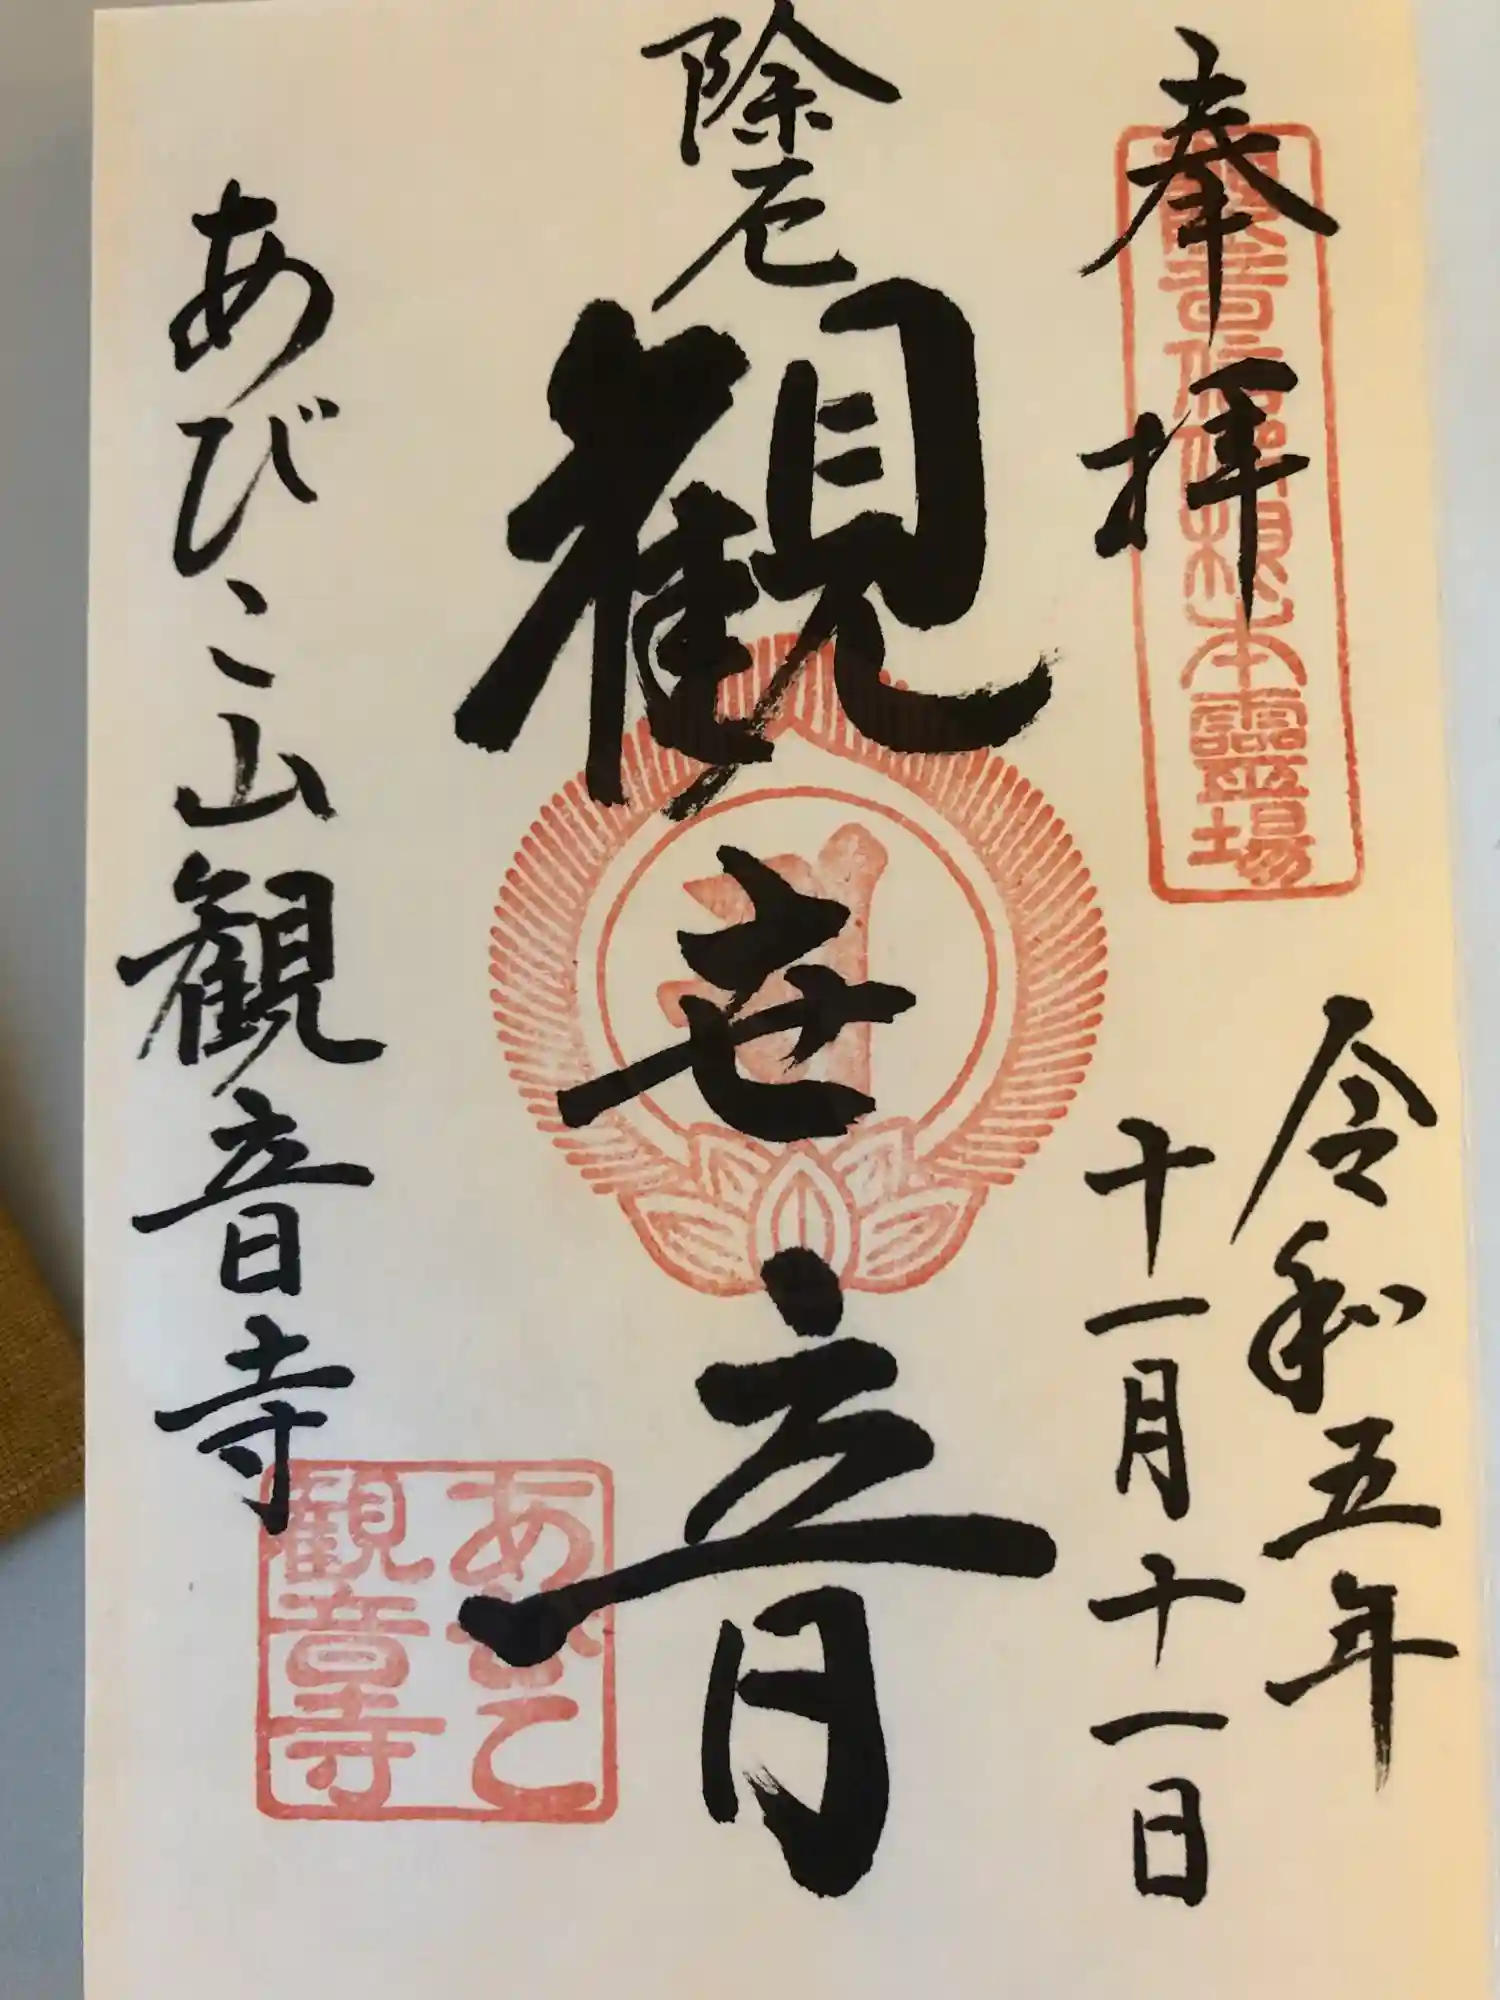 奉拝
観音信仰根本霊場
令和五年
十一月十一日
除厄
観世音
あびこ山観音寺
あびこ
観音寺